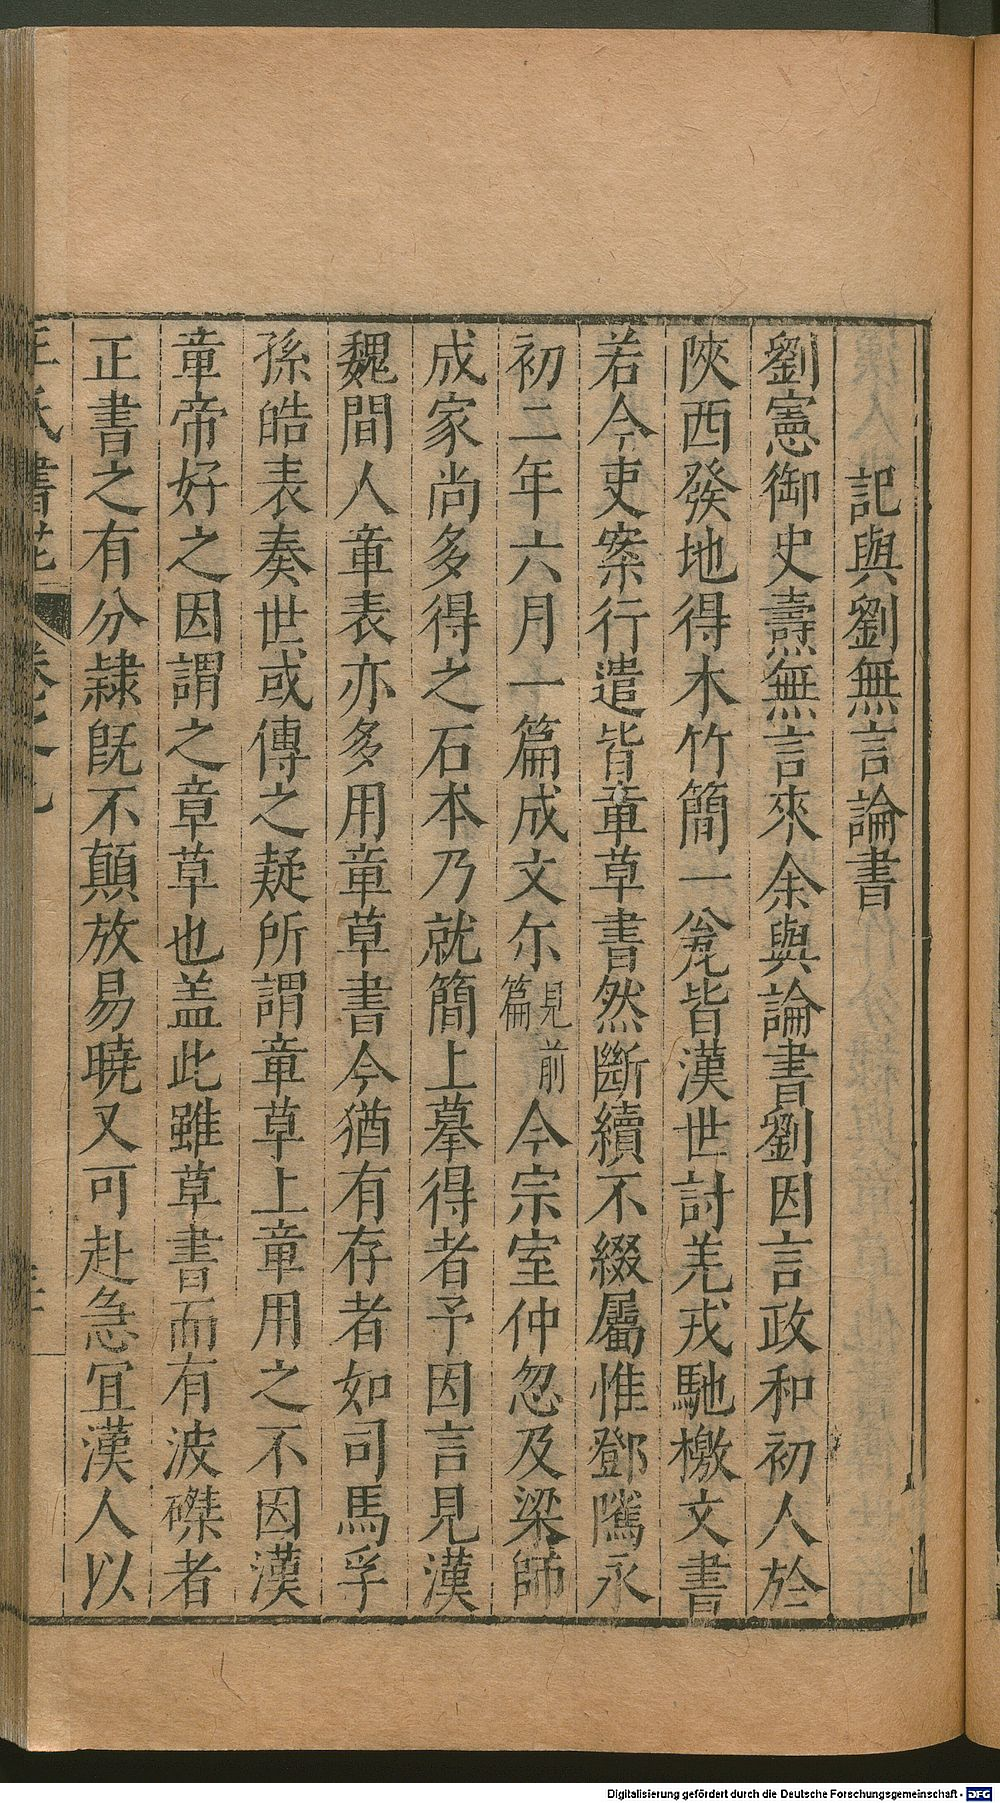 記與劉無言論書
劉憲御史燾無言來余與論書劉因言政和初人於
陝西發地得木竹簡一瓮皆漢世討羌戎馳檄文書
若今吏案行遣皆章草書然斷續不綴屬惟鄧隲永
初二年六月一篇成文尔見前篇今宗室仲忽及梁師
成家尚多得之石本乃就簡上摹得者予因言見漢
魏間人章表亦多用章草書今猶有存者如司馬孚
孫皓表奏世或傳之疑所謂章草上章用之不因漢
章帝好之因謂之章草也盖此雖草書而有波磔者
正書之有分隸既不顛放易曉又可赴急宜漢人以
王氏書苑 卷之九
Digitalisierung gefördert durch die Deutsche Forschungsgemeinschaft - DFG